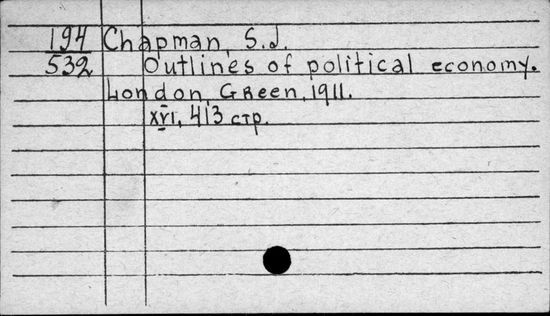 194 Chapman, S.J.
532 Outlines of political economy.
London, Green, 1911.
XVI, 413 стр.